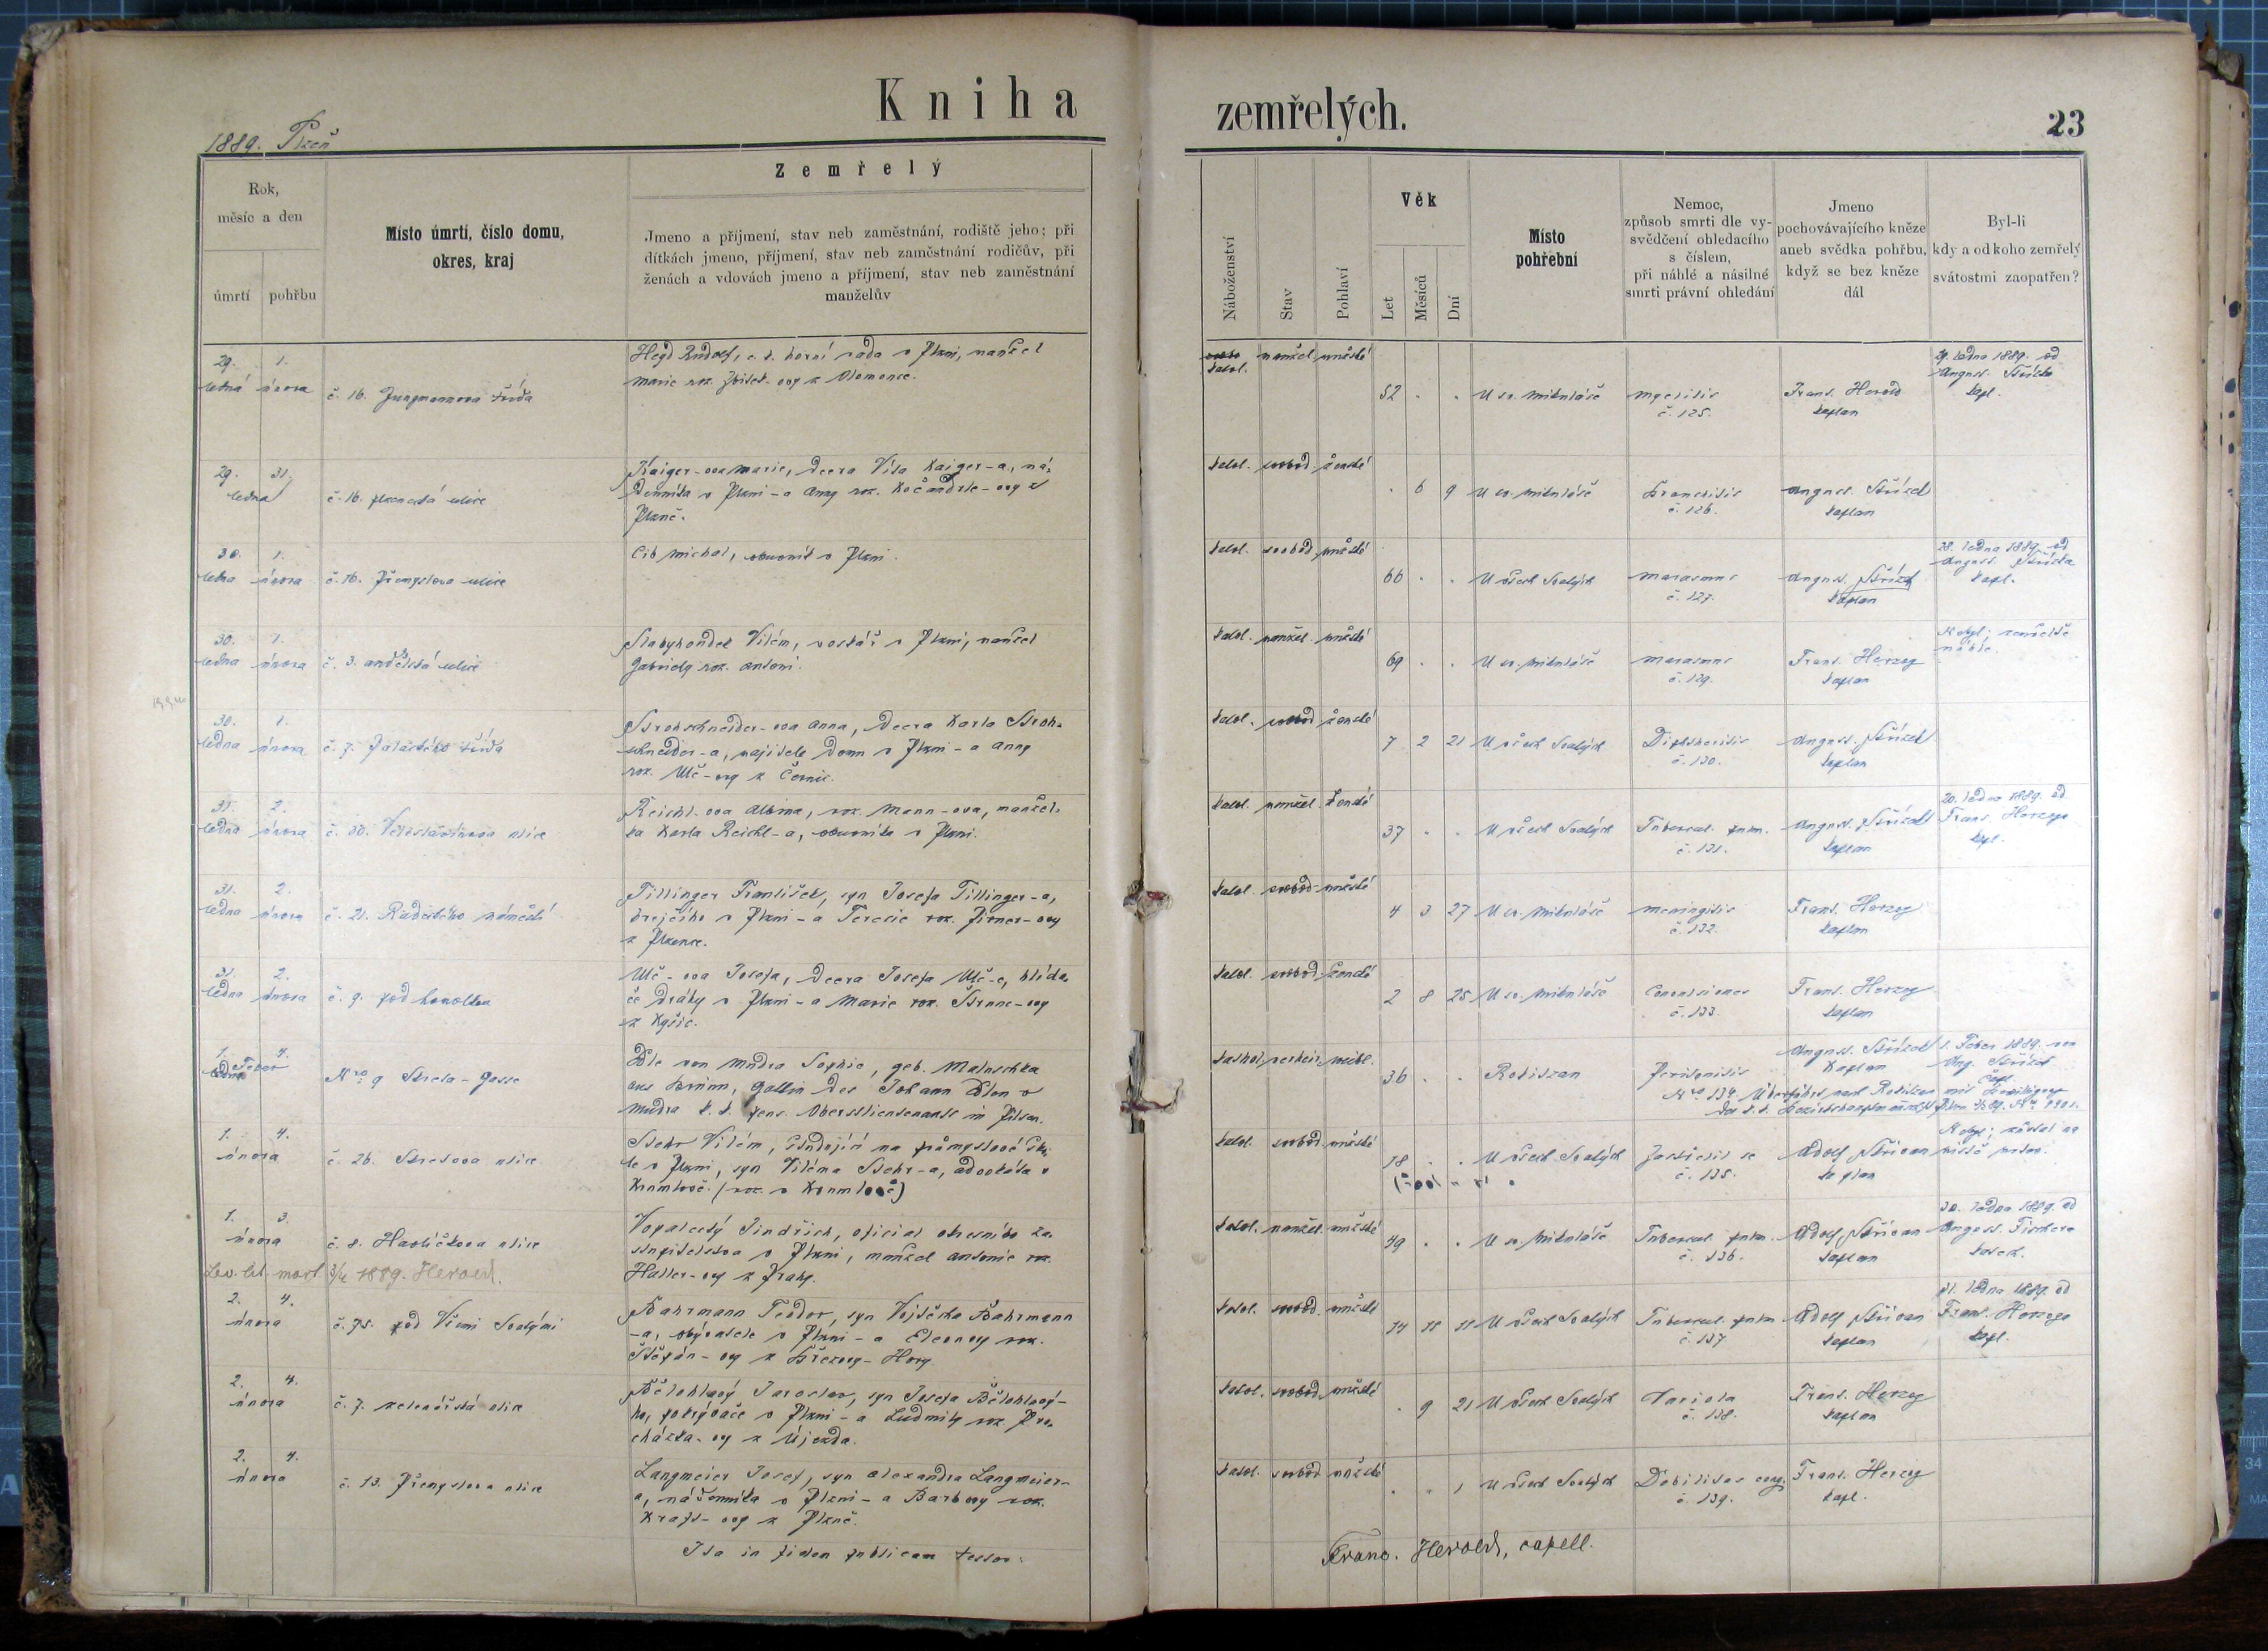 Kniha
zemřelých.
23
1889. Plzeň
Rok,
měsíc a den
úmrtí
pohřbu
Místo úmrtí, číslo domu,
okres, kraj
Zemřelý
Jmeno a příjmení, stav neb zaměstnání, rodiště jeho; při
dítkách jmeno, příjmení, stav neb zaměstnání rodičův, při
ženách a vdovách jmeno a příjmení, stav neb zaměstnání
manželův
Náboženství
Stav
Pohlaví
Věk
Let
Měsíců
Dní
Místo
pohřební
Nemoc,
způsob smrti dle vy-
svědčení ohledacího
s číslem,
při náhlé a násilné
smrti právní ohledání
Jmeno
pochovávajícího kněze
aneb svědka pohřbu,
když se bez kněze
dál
Byl-li
kdy a od koho zemřelý
svátostmi zaopatřen?
29. 1.
ledna února č. 16. Jungmannova třída
Hejd Rudolf, c. k. horní rada v Plzni, manžel
Marie roz. z Olomouce.
katol. manžel. mužské 52 . . U sv. Mikuláše Myelitis
č. 125.
Frant. Herold
kaplan
29. ledna 1889. od
August. Střízka
kapl.
29. 31.
ledna č. 16. plzenecká ulice
Kaiger-ova Marie, dcera Víta Kaiger-a, ná-
denníka v Plzni - a Anny roz. Kočandrle-ovy z
Plzně.
katol. svobod. ženské . 6 9 U sv. Mikuláše Bronchitis
č. 126.
August. Střízek
kaplan
30. 1.
ledna února č. 16. Přemyslova ulice
Cib Michal, obuvník v Plzni.
katol. svobod. mužské 66 . . U všech Svatých Marasmus
č. 127.
August. Střízek
kaplan
28. ledna 1889. od
August. Střízka
kapl.
30. 1.
ledna února č. 3. andělská ulice
Slabyhoudek Vilém, voskář v Plzni, manžel
Gabriely roz. Antoni.
katol. manžel. mužské 69 . . U sv. Mikuláše Marasmus
č. 129.
Frant. Herzog
kaplan
Nebyl; zemřel
náhle.
30. 1.
ledna února č. 7. Palackého třída
Strohschneider-ova Anna, dcera Karla Stroh-
schneider-a, majitele domu v Plzni - a Anny
roz. Ulč-ovy z Černic.
katol. svobod ženské 7 2 21 U všech Svatých Diphtheritis
č. 130.
August. Střízek
kaplan
31. 2.
ledna února č. 30. Veleslavínova ulice
Reichl-ova Albina, roz. Mann-ova, manžel-
ka Karla Reichl-a, obuvníka v Plzni.
katol. manžel. ženské 37 . . U všech Svatých Tubercul. pulm.
č. 131.
August. Střízek
kaplan
20. ledna 1889. od
Frant. Herzoga
kapl.
31. 2.
ledna února č. 21. Radeckého náměstí
Tillinger František, syn Josefa Tillinger-a,
krejčího v Plzni - a Terezie roz. Pirner-ovy
z Plzence.
katol. svobod. mužské 4 3 27 U sv. Mikuláše Meningitis
č. 132.
Frant. Herzog
kaplan
31. 2.
ledna února č. 9. pod homolkou
Ulč-ova Josefa, dcera Josefa Ulč-e, hlída-
če dráhy v Plzni - a Marie roz. Štrunc-ovy
z Kyšic.
katol. svobod. ženské 2 8 25 U sv. Mikuláše Convulsiones
č. 133.
Frant. Herzog
kaplan
1. 4.
ledna Feber Nro 9 Strela-Gasse
Edle von Mudra Sophie, geb. Matuschka
aus Brünn, Gattin des Johann Edlen v
Mudra k. k. pens. Oberstlieutenants in Pilsen.
kathol. verheir. weibl. 36 . . Rokitzan Peritonitis
Nro 134.
August. Střízek
Kaplan
1. Feber 1889. von
Aug. Střízek
Capl.
Überführt nach Rokitzan mit Bewilligung
der k. k. Bezirkshauptmannschaft Pilsen
1. 4.
února č. 26. Střelova ulice
Stehr Vilém, studující na průmyslové ško-
le v Plzni, syn Viléma Stehr-a, advokáta v
Krumlově. (roz. v Krumlově)
katol. svobod. mužské 18 . . U všech Svatých Zastřelil se
č. 135.
Adolf Střívan
kaplan
Nebyl;
1. 3.
února č. 8. Havlíčkova ulice
Vopalecký Jindřich, oficiál okresního za-
stupitelstva v Plzni, manžel Antonie roz.
Haller-ovy z Prahy.
Lev. lit. mort. 3/4 1889. Herold.
katol. manžel. mužské 49 . . U sv. Mikuláše Tubercul. pulm.
č. 136.
Adolf Střívan
kaplan
30. ledna 1889. od
August. Fischera
2. 4.
února č. 75. pod Všemi Svatými
Bahrmann Teodor, syn Vojtěcha Bahrmann
-a, obývatele v Plzni - a Eleonory roz.
Štěpán-ovy z Březovy-Hory.
katol. svobod. mužské 14 11 11 U všech Svatých Tubercul. pulm
č. 137
Adolf Střívan
kaplan
31. ledna 1889. od
Frant. Herzoga
kapl.
2. 4.
února č. 7. zelenářská ulice
Bělohlavý Jaroslav, syn Josefa Bělohlavý-
ho, pokrývače v Plzni - a Ludmily roz. Pro-
cházka-ovy z Újezda.
katol. svobod. mužské . 9 21 U všech Svatých Variola
č. 138.
Frant. Herzog
kaplan
2. 4.
února č. 13. Přemyslova ulice
Langmeier Josef, syn Alexandra Langmeier-
a, nádenníka v Plzni - a Barbory roz.
Kraft-ovy z Plzně.
katol. svobod mužské . . 1 U všech Svatých Debilitas cong.
č. 139.
Frant. Herzog
kapl.
Ita in fidem publicam testor:
Franc. Herold, capell.